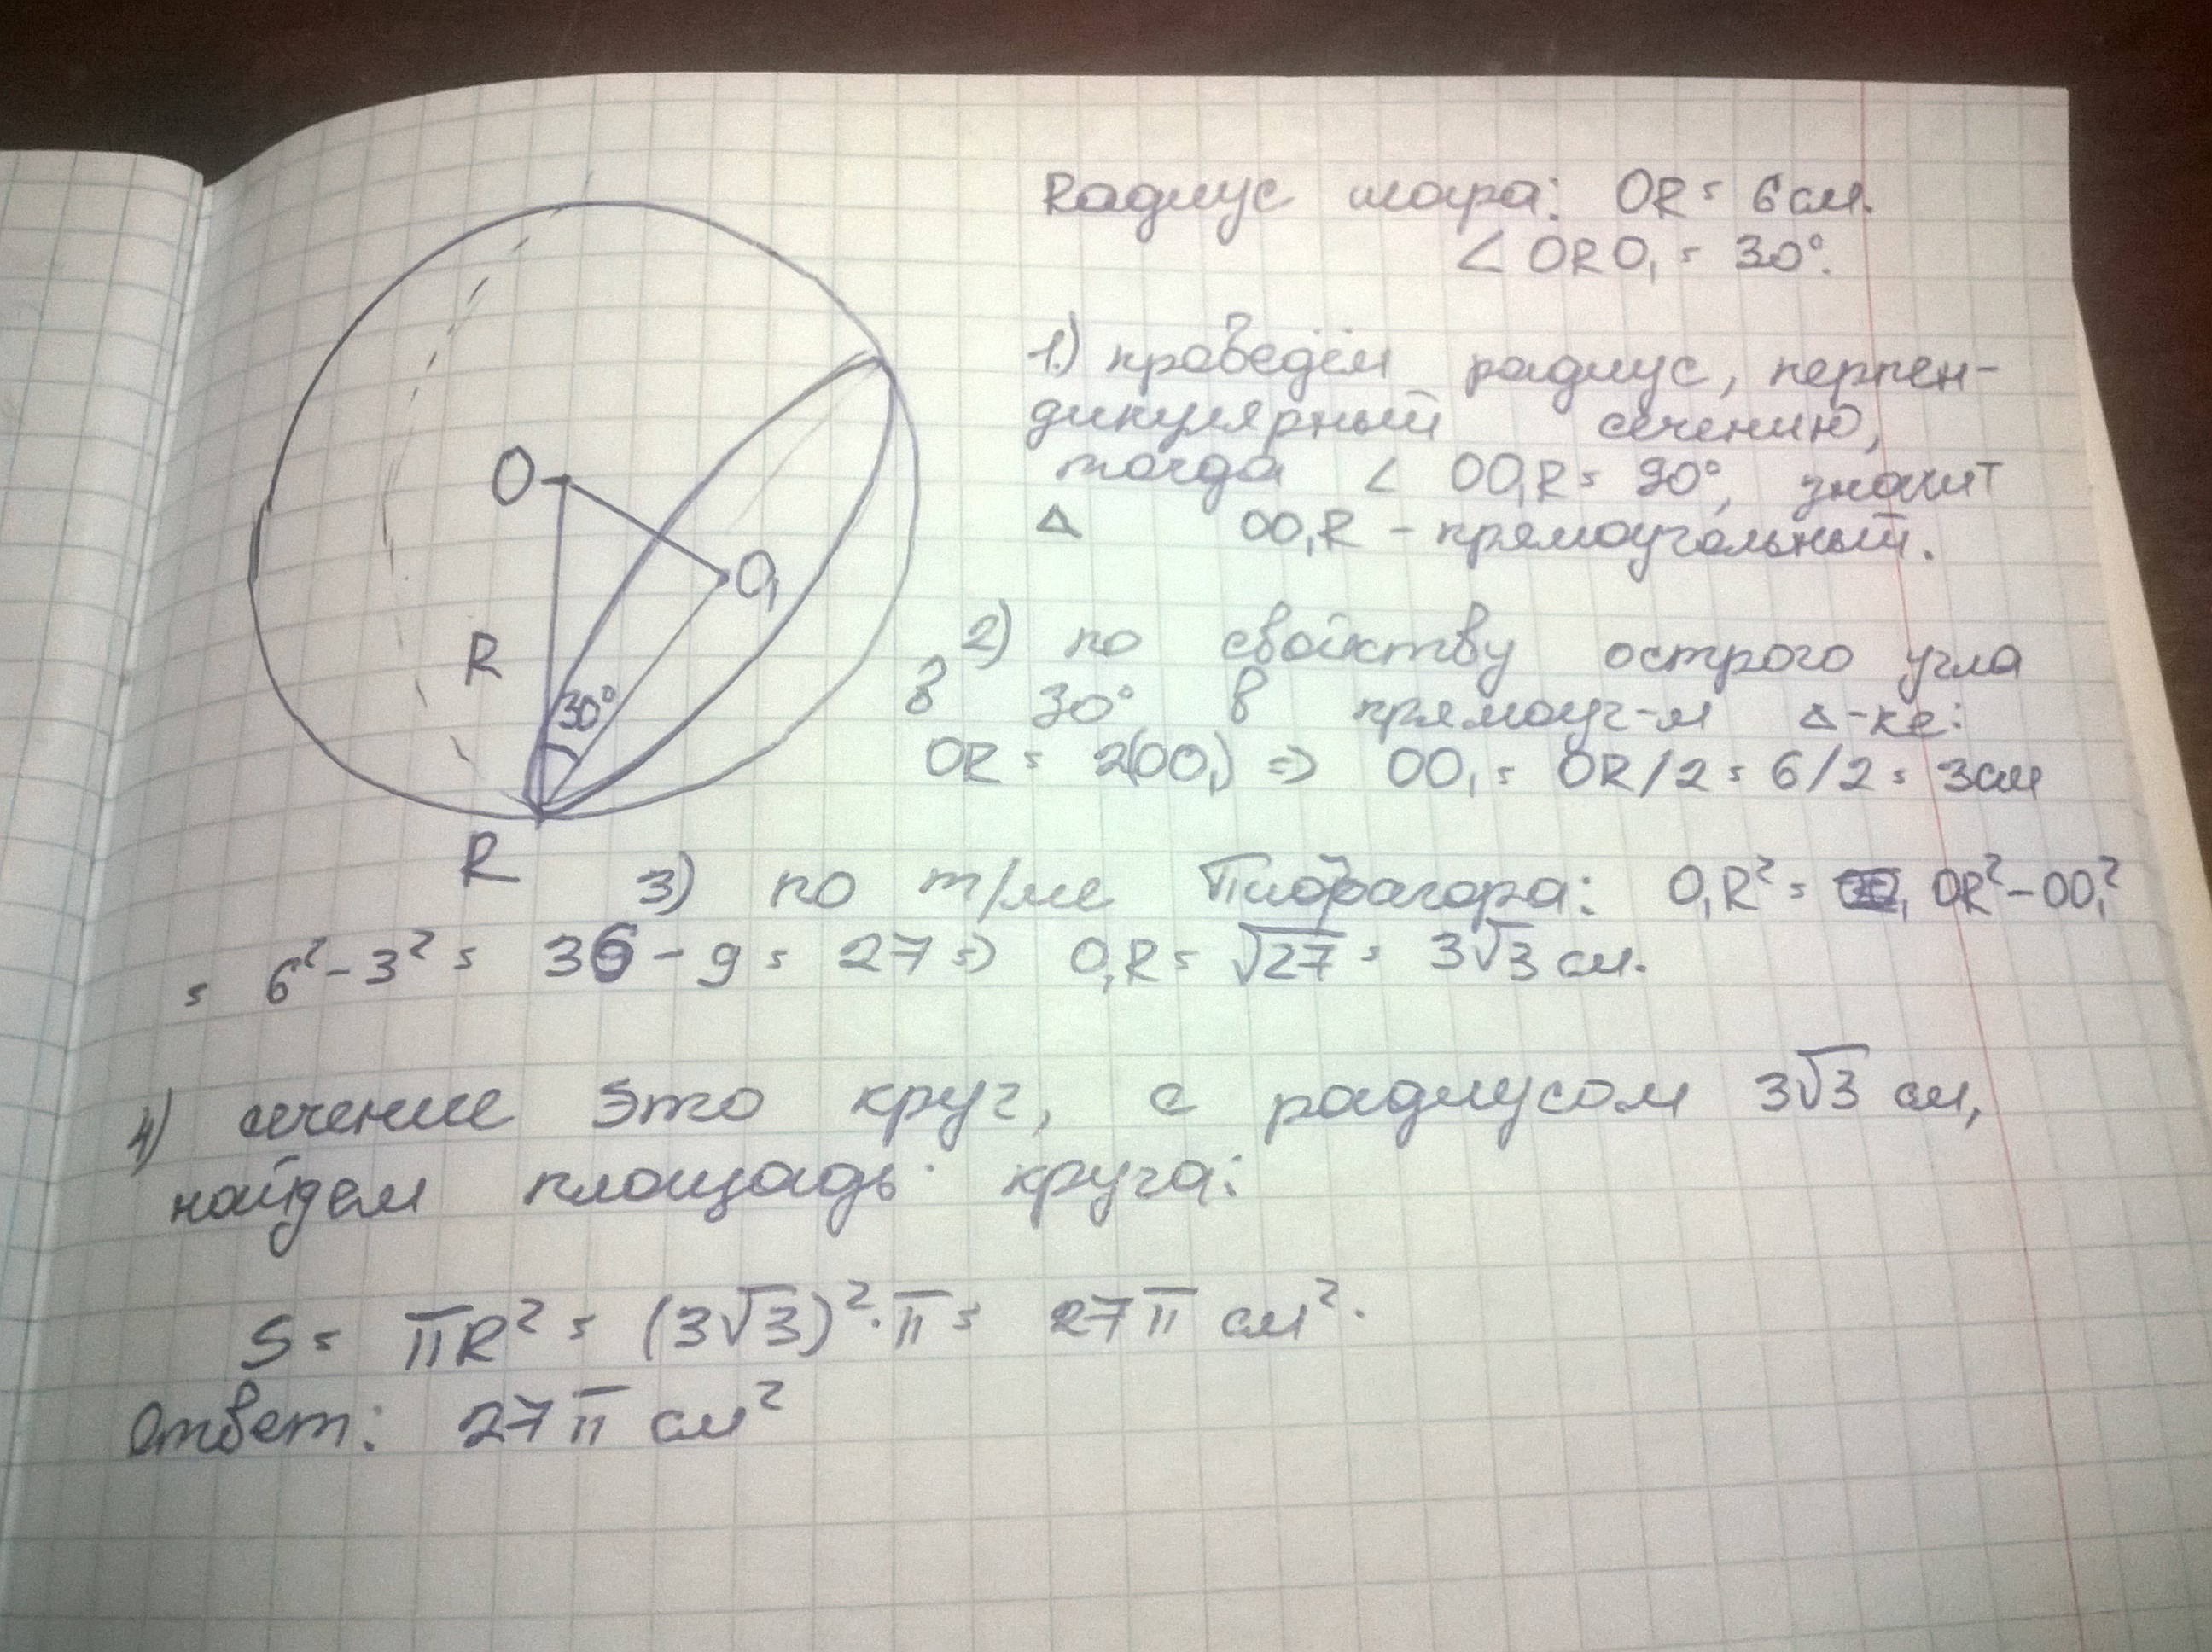 Rадиус шара: OR = 6 см.
∠ ORO₁ = 30°.
1.) проведём радиус, перпен-
дикулярный сечению,
тогда ∠ OO₁R = 90°, значит
Δ OO₁R - прямоугольный.
O
O₁
R
30°
R
2) по свойству острого угла
в 30° в прямоуг-м Δ-ке:
OR = 2(OO₁) => OO₁ = OR/2 = 6/2 = 3см
3) по т/ме Пифагора: O₁R² = OR² - OO₁²
= 6² - 3² = 36 - 9 = 27 => O₁R = √27 = 3√3 см.
4) сечение это круг, с радиусом 3√3 см,
найдем площадь круга:
S = πR² = (3√3)² · π = 27π см².
Ответ: 27π см²